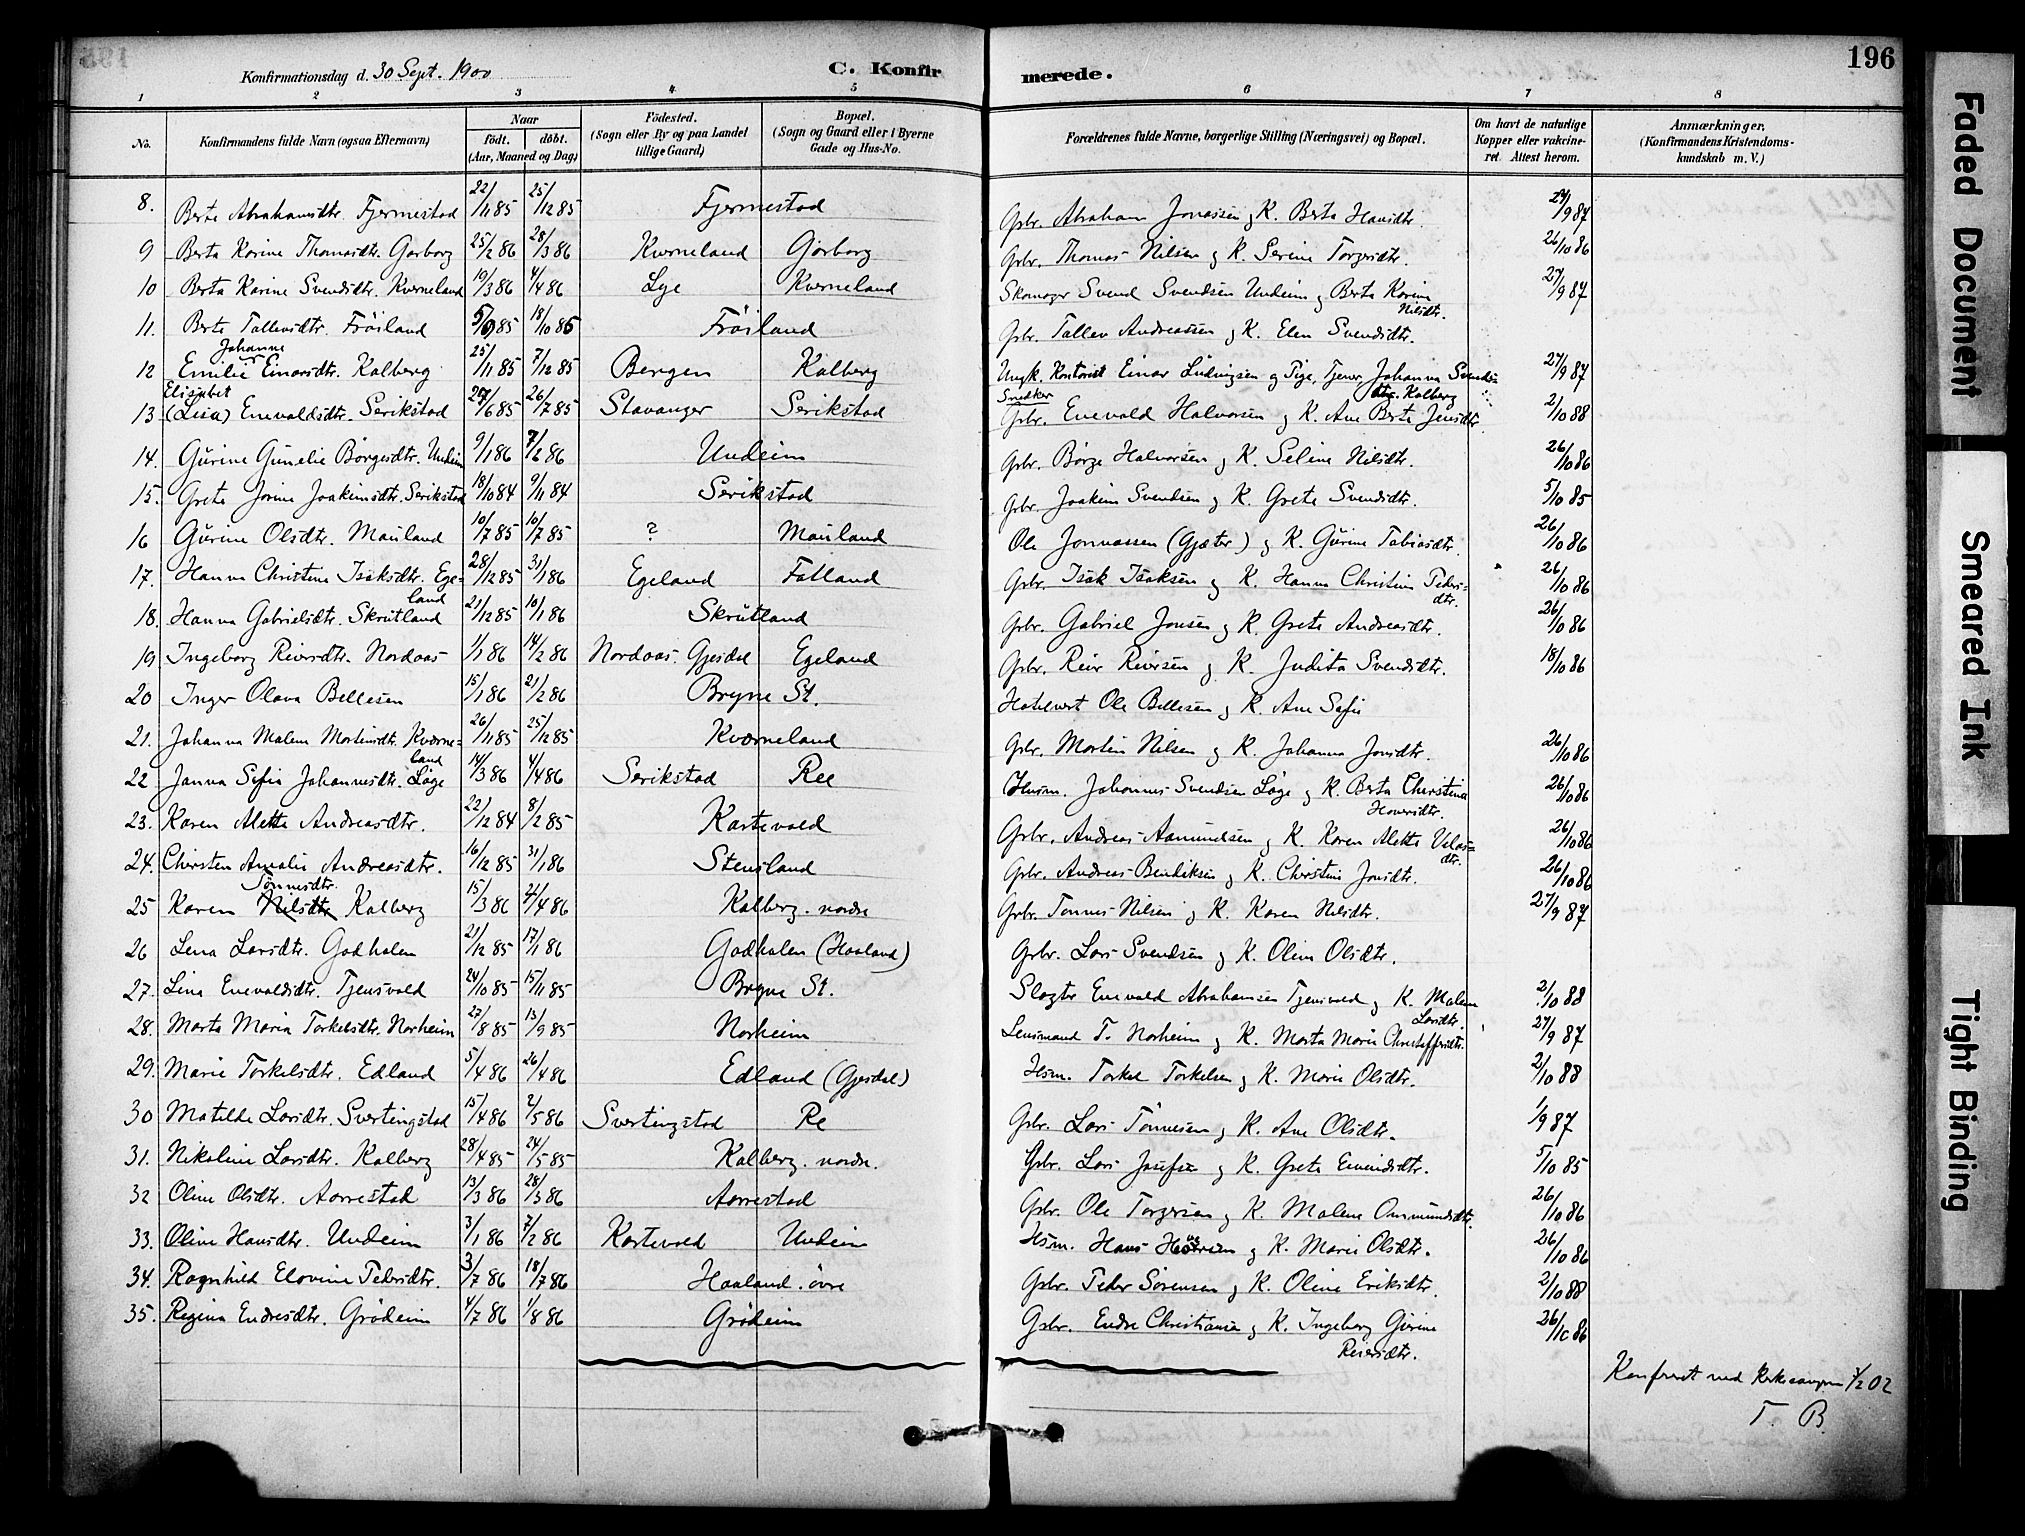 196
Konfirmationsdag d. 30 Sept. 1900
C. Konfirmerede.
1 2 3 4 5 6 7 8
No. Konfirmandens fulde Navn (ogsaa Efternavn) Naar födt. döbt. (Aar, Maaned og Dag) Födested. (Sogn eller By og paa Landet tillige Gaard) Bopæl. (Sogn og Gaard eller i Byerne Gade og Hus-No. Forældrenes fulde Navne, borgerlige Stilling (Næringsvei) og Bopæl. Om havt de naturlige Kopper eller vakcineret. Attest herom. Anmærkninger. (Konfirmandens Kristendomskundskab m. V.)
8. Berta Abrahamsdtr. Fjermestad 22/11 85 25/12 85 Fjermestad Gbr. Abraham Jonassen og K. Berta Hansdtr. 27/9 87
9 Berta Karine Thomasdtr. Garborg 25/2 86 28/3 86 Kverneland Garborg Gbr. Thomas Nilsen og K. Serine Torgersdtr. 26/10 86
10 Berta Karine Svendsdtr. Kverneland 19/3 86 4/4 86 Lye Kverneland Skomager Svend Svendsen Undeim og Berta Karine Nilsdtr. 27/9 87
11. Berta Tallevsdtr. Fröiland 5/9 85 18/10 85 Fröiland Gbr. Tallev Andreassen og K. Elen Svendsdtr.
12 Emilie Johanne Einarsdtr. Kalberg 25/11 85 7/12 85 Bergen Kalberg Ungk. Kontorist Einar Ludvigsen og Pige, Tjener Johanna Svendsdtr. Kalberg 27/9 87
13. Elisabet (Lisa) Enevaldsdtr. Serikstad 27/6 85 26/7 85 Stavanger Serikstad Snedker Gbr. Enevald Halvorsen og K. Ane Berta Jensdtr. 2/10 88
14. Gurine Gunelie Börgesdtr. Undeim 9/1 86 7/2 86 Undeim Gbr. Börge Halvorsen og K. Seline Nilsdtr. 26/10 86
15. Grete Jorine Joakimsdtr. Serikstad 18/10 84 9/11 84 Serikstad Gbr. Joakim Svendsen og K. Grete Svendsdtr. 5/10 85
16 Gurine Olsdtr. Mauland 10/7 85 10/7 85 ? Mauland Ole Jonnassen (Gjæter) og K. Gurine Tobiasdtr. 26/10 86
17. Hanna Christine Isaksdtr. Egeland 28/12 85 31/1 86 Egeland Fotland Gbr. Isak Isaksen og K. Hanna Christine Pedersdtr. 26/10 86
18. Hanna Gabrielsdtr. Skrutland 21/12 85 10/1 86 Skrutland Gbr. Gabriel Jonsen og K. Grete Andreasdtr. 26/10 86
19 Ingeborg Reiersdtr. Nordaas 1/1 86 14/2 86 Nordaas. Gjesdal Egeland Gbr. Reier Reiersen og K. Judita Svendsdtr. 18/10 86
20 Inger Olava Bellesen 15/1 86 21/2 86 Bryne St. Hotelvert Ole Bellesen og K. Ane Sofie
21. Johanna Malena Mortensdtr. Kverneland 26/11 85 25/12 85 Kverneland Gbr. Morten Nilsen og K. Johanna Jonsdtr. 26/10 86
22 Janna Sofie Johannesdtr. Löge 14/3 86 4/4 86 Serikstad Ree Husm. Johannes Svendsen Löge og K. Berta Christine Hoversdtr. 26/10 86
23. Karen Alette Andreasdtr. 22/12 84 8/2 85 Kartevold Gbr. Andreas Aamundsen og K. Karen Alette Velasdtr. 26/10 86
24. Chirsten Amalie Andreasdtr. 16/12 85 31/1 86 Stensland Gbr. Andreas Bendiksen og K. Chirstine Jonsdtr. 26/10 86
25 Karen Nilsdtr. Tönnesdtr. Kalberg 15/3 86 4/4 86 Kalberg. nordre Gbr. Tönnes Nilsen og K. Karen Nilsdtr. 27/9 87
26 Lena Larsdtr. Godhalen 21/12 85 17/1 86 Godhalen (Haaland) Gbr. Lars Svendsen og K. Oline Olsdtr.
27. Lina Enevaldsdtr. Tjensvold 24/10 85 15/11 85 Bryne St. Slagter Enevald Abrahamsen Tjensvold og K. Malene Larsdtr. 2/10 88
28. Marta Maria Torkelsdtr. Norheim 27/8 85 13/9 85 Norheim Lensmand T. Norheim og K. Marta Marie Christoffersdtr. 27/9 87
29. Marie Torkelsdtr. Edland 5/4 86 26/4 86 Edland (Gjesdal) Hsm. Torkel Torkelsen og K. Marie Olsdtr. 2/10 88
30 Matilde Larsdtr. Svertingstad 15/4 86 2/5 86 Svertingstad Re Gbr. Lars Tönnesen og K. Ane Olsdtr. 1/9 87
31. Nikoline Larsdtr. Kalberg 28/4 85 24/5 85 Kalberg. nordre. Gbr. Lars Josefsen og K. Grete Eivindsdtr. 5/10 85
32 Oline Olsdtr. Aarrestad 13/3 86 28/3 86 Aarrestad Gbr. Ole Torgersen og K. Malene Ommundsdtr. 26/10 86
33. Oline Hansdtr. Undeim 3/1 86 7/2 86 Kartevold Undeim Hsm. Hans og K. Marie Olsdtr. 26/10 86
34. Ragnhild Elovine Pedersdtr. 3/7 86 18/7 86 Haaland. övre Gbr. Peder Sörensen og K. Oline Eriksdtr. 2/10 88
35. Regina Endresdtr. Grödeim 4/7 86 1/8 86 Grödeim Gbr. Endre Christiansen og K. Ingeborg Gurine Reiersdtr. 26/10 86
Konfereret med 02
T. B.
Faded Document
Smeared Ink
Tight Binding